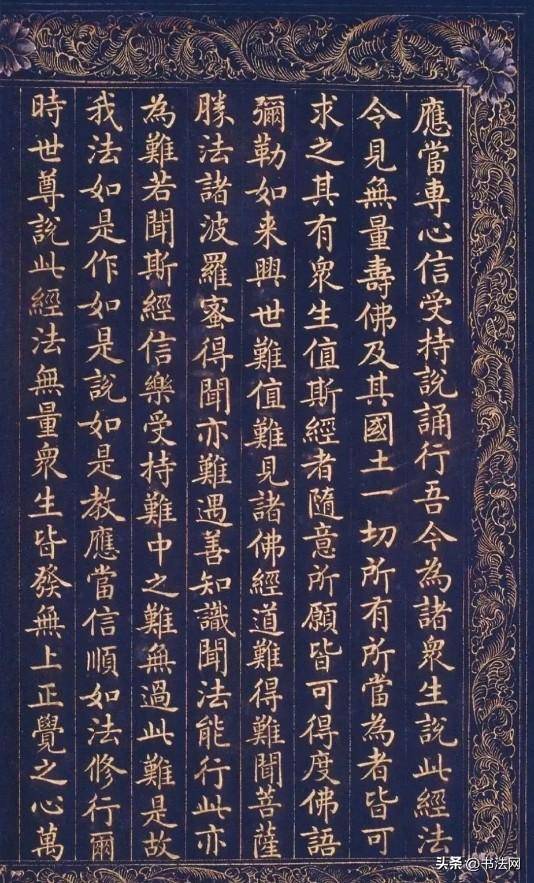 應當専心信受持説誦行吾今為諸衆生説此經法
令見無量壽佛及其國土一切所有所當為者皆可
求之其有衆生值斯經者隨意所願皆可得度佛語
彌勒如来興世難值難見諸佛經道難得難聞菩薩
勝法諸波羅蜜得聞亦難遇善知識聞法能行此亦
為難若聞斯經信樂受持難中之難無過此難是故
我法如是作如是説如是教應當信順如法修行爾
時世尊説此經法無量衆生皆發無上正覺之心萬
头条 @书法网